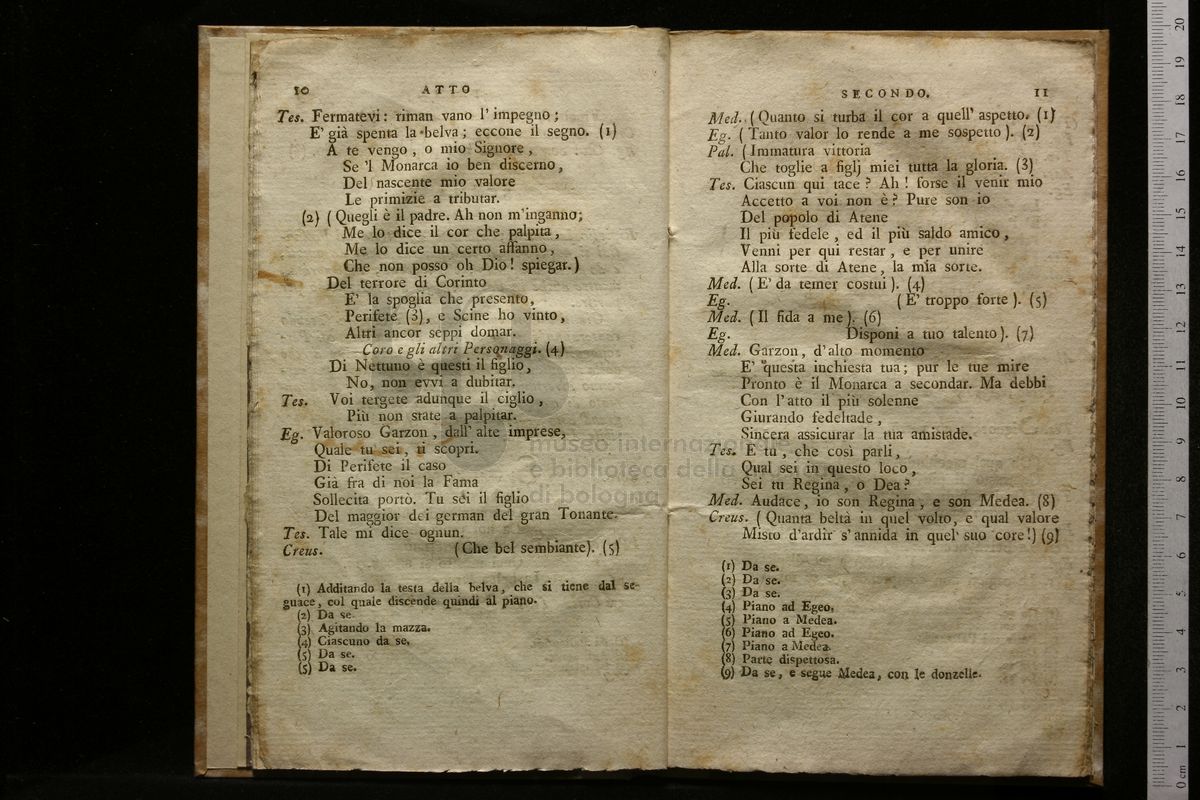 10 ATTO
Tes. Fermatevi: riman vano l' impegno;
E' già spenta la belva; eccone il segno. (1)
A te vengo, o mio Signore,
Se 'l Monarca io ben discerno,
Del nascente mio valore
Le primizie a tributar.
(2) (Quegli è il padre. Ah non m'inganno;
Me lo dice il cor che palpita,
Me lo dice un certo affanno,
Che non posso oh Dio! spiegar.)
Del terrore di Corinto
E' la spoglia che presento,
Perifete (3), e Scine ho vinto,
Altri ancor seppi domar.
Coro e gli altri Personaggi. (4)
Di Nettuno è questi il figlio,
No, non evvi a dubitar.
Tes. Voi tergete adunque il ciglio,
Più non state a palpitar.
Eg. Valoroso Garzon, dall' alte imprese,
Quale tu sei, ti scopri.
Di Perifete il caso
Già fra di noi la Fama
Sollecita portò. Tu sei il figlio
Del maggior dei german del gran Tonante.
Tes. Tale mi dice ognun.
Creus. (Che bel sembiante). (5)
(1) Additando la testa della belva, che si tiene dal se-
guace, col quale discende quindi al piano.
(2) Da se.
(3) Agitando la mazza.
(4) Ciascuno da se.
(5) Da se.
(5) Da se.
SECONDO. 11
Med. (Quanto si turba il cor a quell' aspetto. (1)
Eg. (Tanto valor lo rende a me sospetto). (2)
Pal. (Immatura vittoria
Che toglie a figlj miei tutta la gloria. (3)
Tes. Ciascun qui tace? Ah! forse il venir mio
Accetto a voi non è? Pure son io
Del popolo di Atene
Il più fedele, ed il più saldo amico,
Venni per qui restar, e per unire
Alla sorte di Atene, la mia sorte.
Med. (E' da temer costui). (4)
Eg. (E' troppo forte). (5)
Med. (Il fida a me). (6)
Eg. Disponi a tuo talento). (7)
Med. Garzon, d'alto momento
E' questa inchiesta tua; pur le tue mire
Pronto è il Monarca a secondar. Ma debbi
Con l'atto il più solenne
Giurando fedeltade,
Sincera assicurar la tua amistade.
Tes. E tu, che così parli,
Qual sei in questo loco,
Sei tu Regina, o Dea?
Med. Audace, io son Regina, e son Medea. (8)
Creus. (Quanta beltà in quel volto, e qual valore
Misto d'ardir s'annida in quel' suo core!) (9)
(1) Da se.
(2) Da se.
(3) Da se.
(4) Piano ad Egeo.
(5) Piano a Medea.
(6) Piano ad Egeo.
(7) Piano a Medea.
(8) Parte dispettosa.
(9) Da se, e segue Medea, con le donzelle.
museo internazionale
e biblioteca della
di bologna
0 cm 1 2 3 4 5 6 7 8 9 10 11 12 13 14 15 16 17 18 19 20